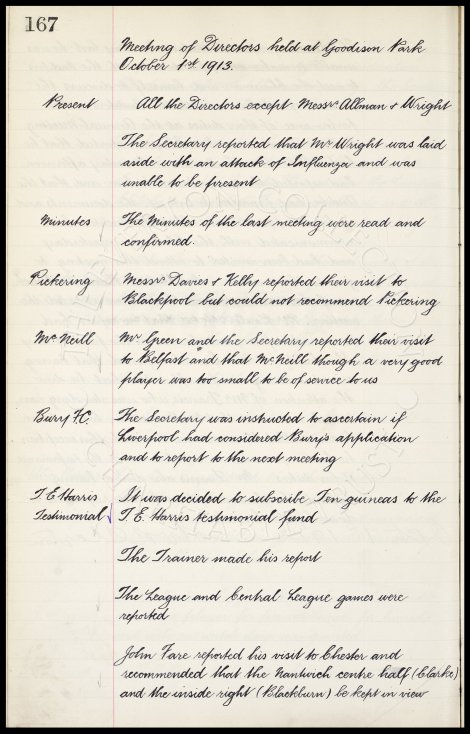 167
Meeting of Directors held at Goodison Park
October 1st 1913.
Present All the Directors except Messrs Allman & Wright
The Secretary reported that Mr Wright was laid
aside with an attack of Influenza and was
unable to be present
Minutes The Minutes of the last meeting were read and
confirmed.
Pickering Messrs Davies & Kelly reported their visit to
Blackpool but could not recommend Pickering
McNeill Mr Green and the Secretary reported their visit
to Belfast and that McNeill though a very good
player was too small to be of service to us
Burry F.C. The Secretary was instructed to ascertain if
Liverpool had considered Burry's application
and to report to the next meeting
T E Harris It was decided to subscribe Ten guineas to the
Testimonial T. E. Harris testimonial fund
The Trainer made his report
The League and Central League games were
reported
John Fare reported his visit to Chester and
recommended that the Nantwich centre half (Clarke)
and the inside right (Blackburn) be kept in view